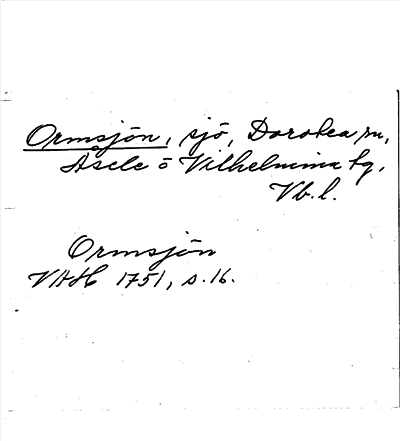 Ormsjön, sjö, Dorotea sn,
Åsele o Vilhelmina tg,
Vb. l.
Ormsjön
VAH 1751, s. 16.